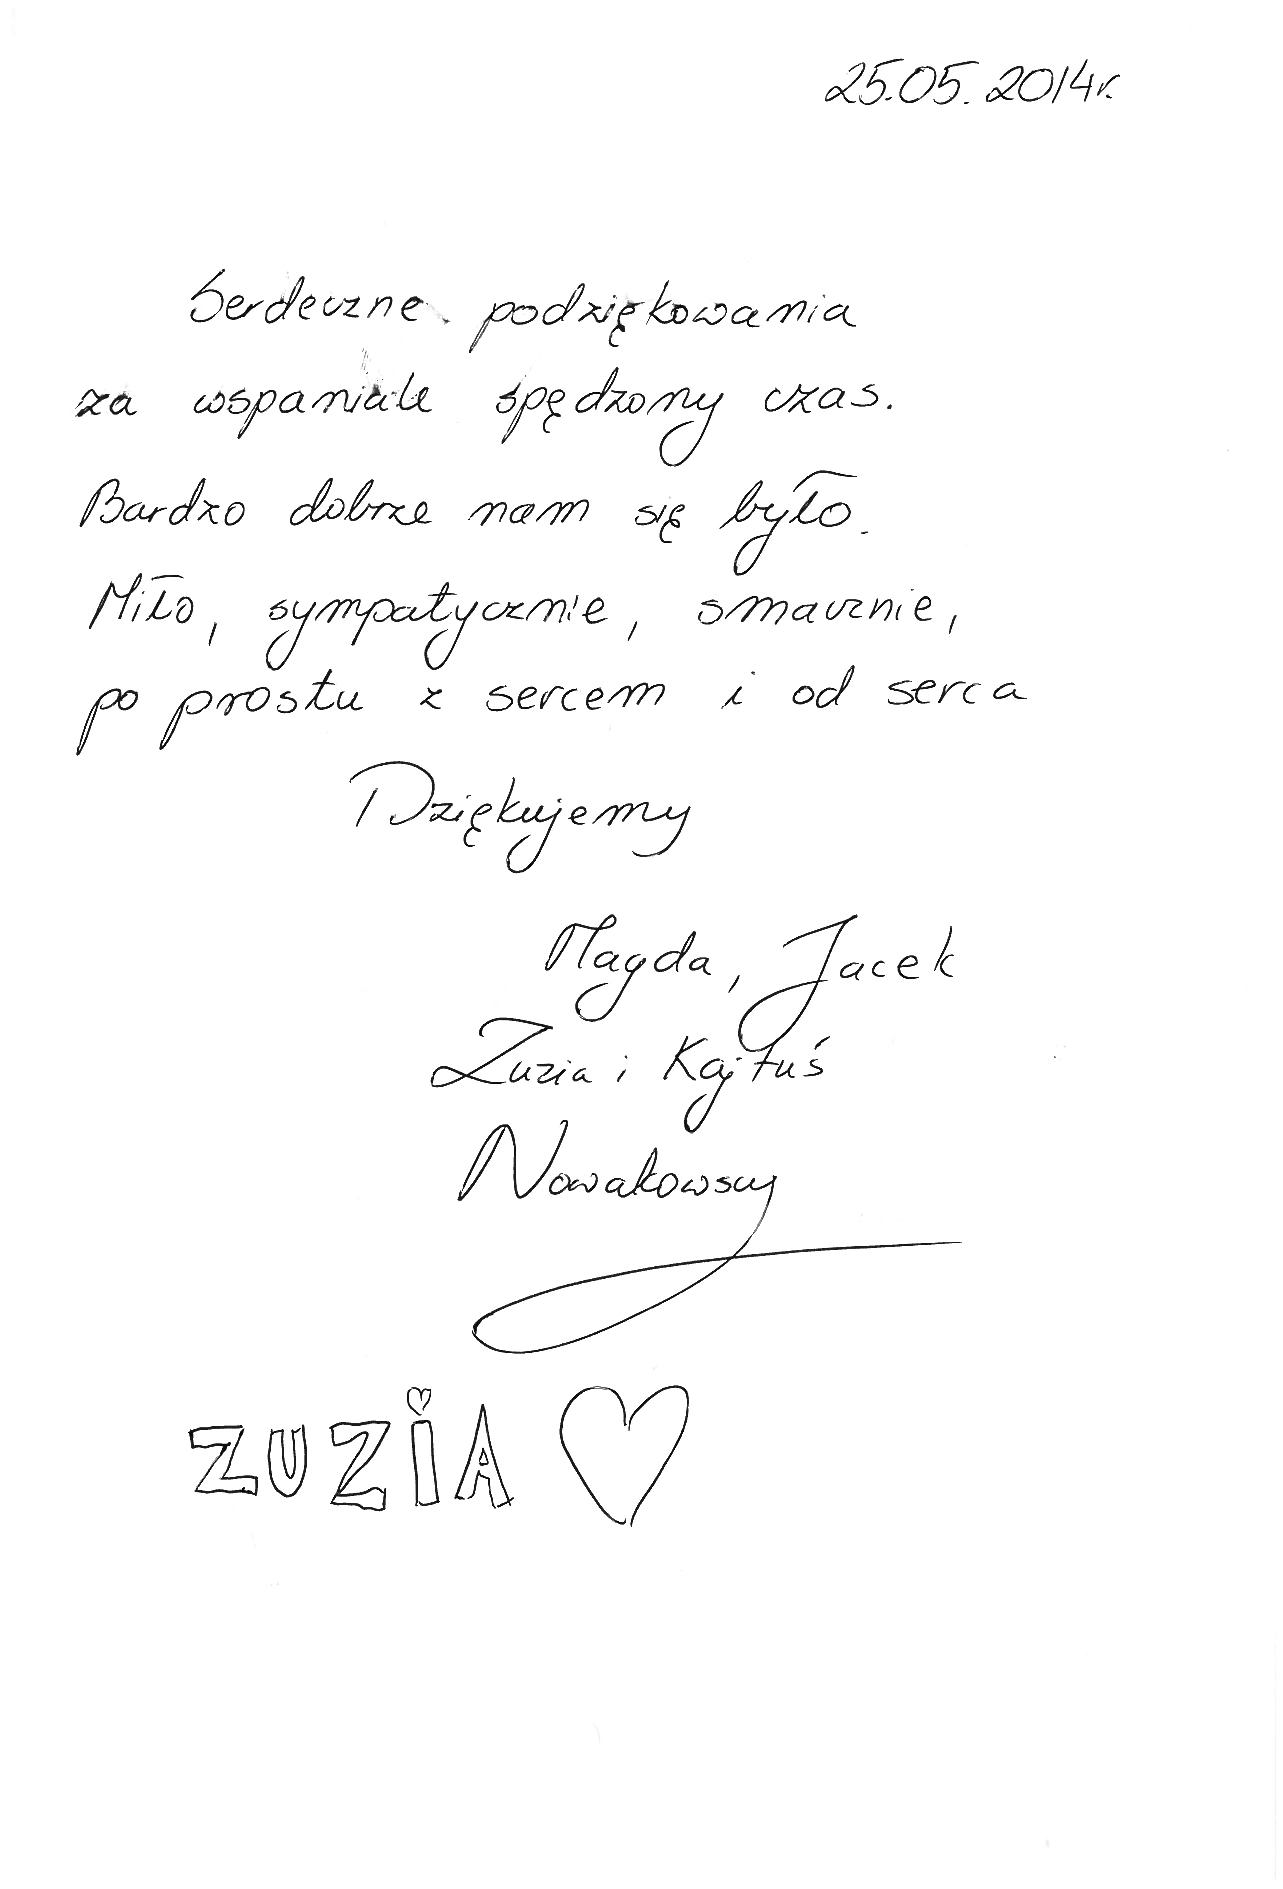 25.05.2014r.
Serdeczne podziękowania
za wspaniale spędzony czas.
Bardzo dobrze nam się było.
Miło, sympatycznie, smacznie,
po prostu z sercem i od serca
Dziękujemy
Magda, Jacek
Zuzia i Kajtuś
Nowakowscy
ZUZiA